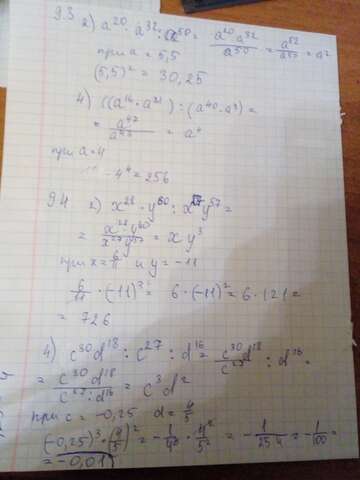 9.3
2) a²⁰ · a³² : a⁵⁰ = a²⁰ · a³² / a⁵⁰ = a⁵² / a⁵⁰ = a²
при a = 5,5
(5,5)² = 30,25
4) ((a¹⁶ · a³¹) : (a⁴⁰ · a³) =
= a⁴⁷ / a⁴³ = a⁴
при a = 4
4⁴ = 256
9.4 2) x²⁸ · y⁶⁰ : x²⁷ y⁵⁷ =
= x²⁸ · y⁶⁰ / x²⁷ y⁵⁷ = x y³
при x = 6/11 и y = -11
6/11 · (-11)³ = 6 · (-11)² = 6 · 121 =
= 726
4) c³⁰ d¹⁸ : c²⁷ : d¹⁶ = c³⁰ d¹⁸ / c²⁷ : d¹⁶ =
= c³⁰ d¹⁸ / c²⁷ · d¹⁶ = c³ d²
при c = -0,25 d = 4/5
(-0,25)³ · (4/5)² = - 1/4³ · 4²/5² = - 1/25·4 = - 1/100 =
= -0,01